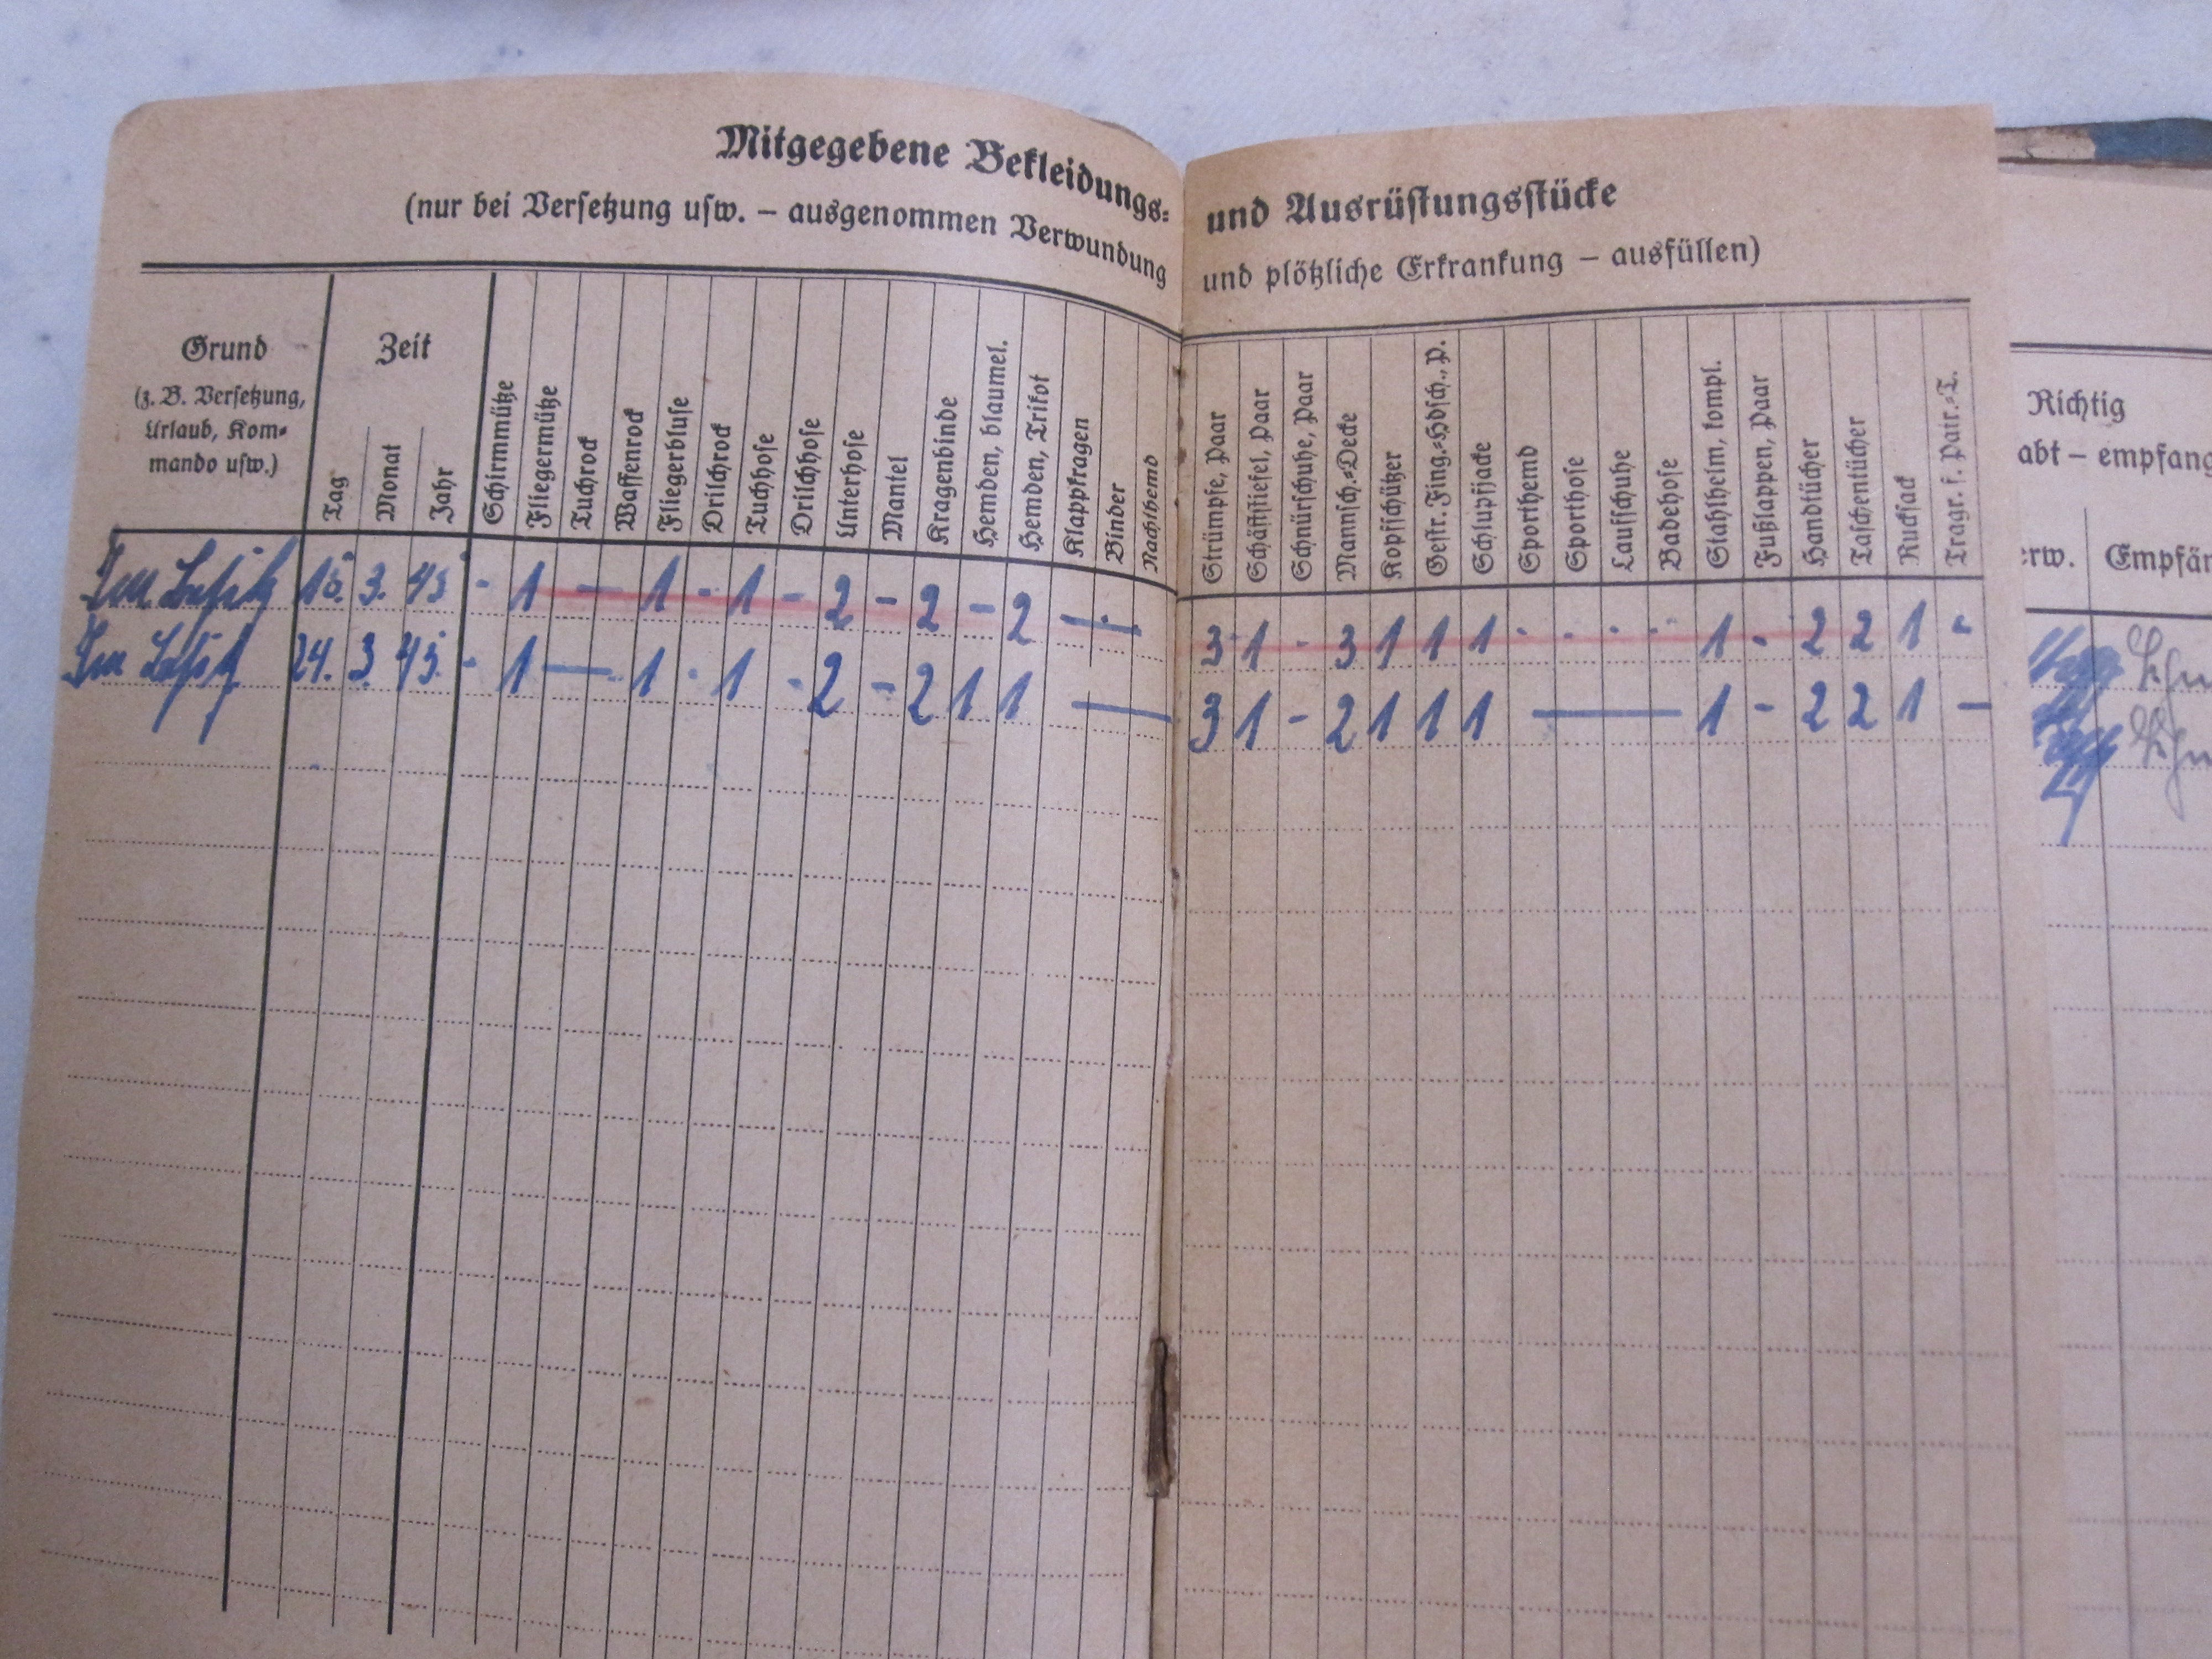 Mitgegebene Bekleidungs- und Ausrüstungsstücke
(nur bei Versetzung usw. – ausgenommen Verwundung und plötzliche Erkrankung – ausfüllen)
Grund
(z. B. Versetzung,
Urlaub, Kom-
mando usw.)
Zeit
Tag
Monat
Jahr
Schirmmütze
Fliegermütze
Tuchrock
Waffenrock
Fliegerbluse
Drilchrock
Tuchhose
Drilchhose
Unterhose
Mantel
Kragenbinde
Hemden, blaumel.
Hemden, Trikot
Klappkragen
Binder
Nachthemd
Strümpfe, Paar
Schaftstiefel, Paar
Schnürschuhe, Paar
Mannsch.-Decke
Kopfschützer
Gestr. Fing.-Hdsch., P.
Schlupfjacke
Sporthemd
Sporthose
Laufschuhe
Badehose
Stahlhelm, kompl.
Fußlappen, Paar
Handtücher
Taschentücher
Rucksack
Tragr. f. Patr.-T.
Im Besitz 3. 45 - 1 — 1 - 1 - 2 - 2 - 2 — 3 1 - 3 1 1 1 - - - - 1 - 2 2 1 -
Im Besitz 24. 3. 45. - 1 — 1 - 1 - 2 - 2 1 1 — 3 1 - 2 1 1 1 — 1 - 2 2 1 —
Richtig
abt – empfang
erw.
Empfän